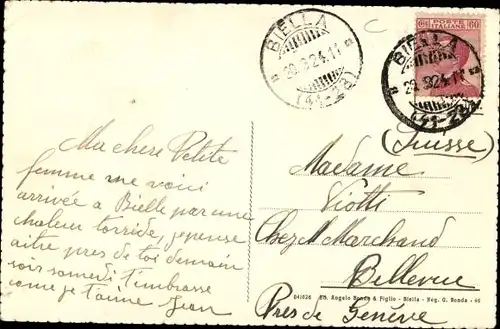 BIELLA
29.8.24.11
(41-23)
POSTE ITALIANE
BIELLA
29.8.24.11
(41-23)
(Suisse)
Ma chère Petite
femme me voici
arrivée a Bielle par une
chaleur torride, je pense
aitre pres de toi demain
soir samedi t'imbrasse
come je t'aime Jean
Madame
Viotti
Chez M Marchand
Bellevue
Pres de Genève
Ed. Angelo Bonda & Figlio - Biella - Neg. G. Bonda - 46